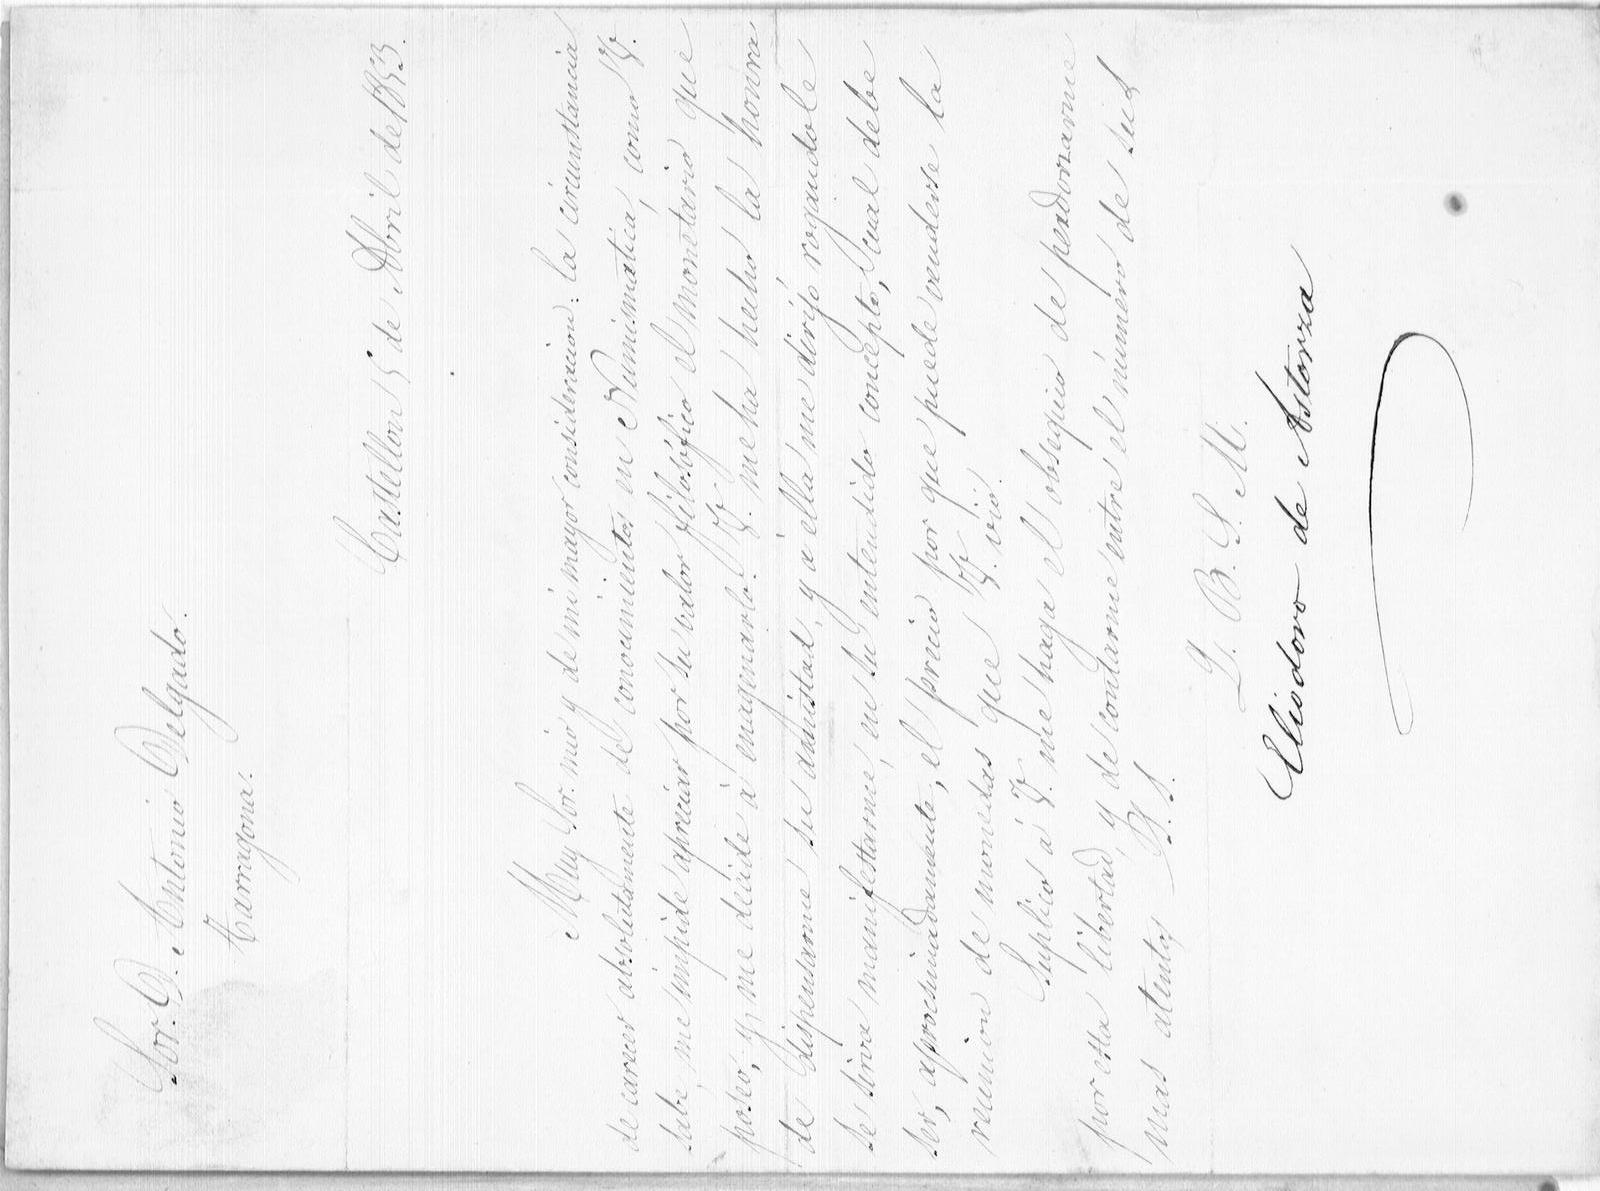 Sor. D. Antonio Delgado.
Tarragona.
Castellon 15 de Abril de 1853.
Muy Sor. mio y de mi mayor consideracion: la circunstancia
de carecer absolutamente de conocimientos en Numismatica, como V.
sabe, me impide apreciar por su valor filosófico el monetario que
poseo, y me decide á enagenarlo. V. me ha hecho la honra
de dispensarme su amistad, y á ella me dirijo rogandole
se sirva manifestarme, en su entendido concepto, cual debe
ser, aprocsimadamente, el precio por que puede venderse la
reunion de monedas que V. vió.
Suplico á V. me haga el obsequio de perdonarme
por esta libertad, y de contarme entre el número de sus
mas atentos S. S.
Q. B. S. M.
Eliodoro de Astorza